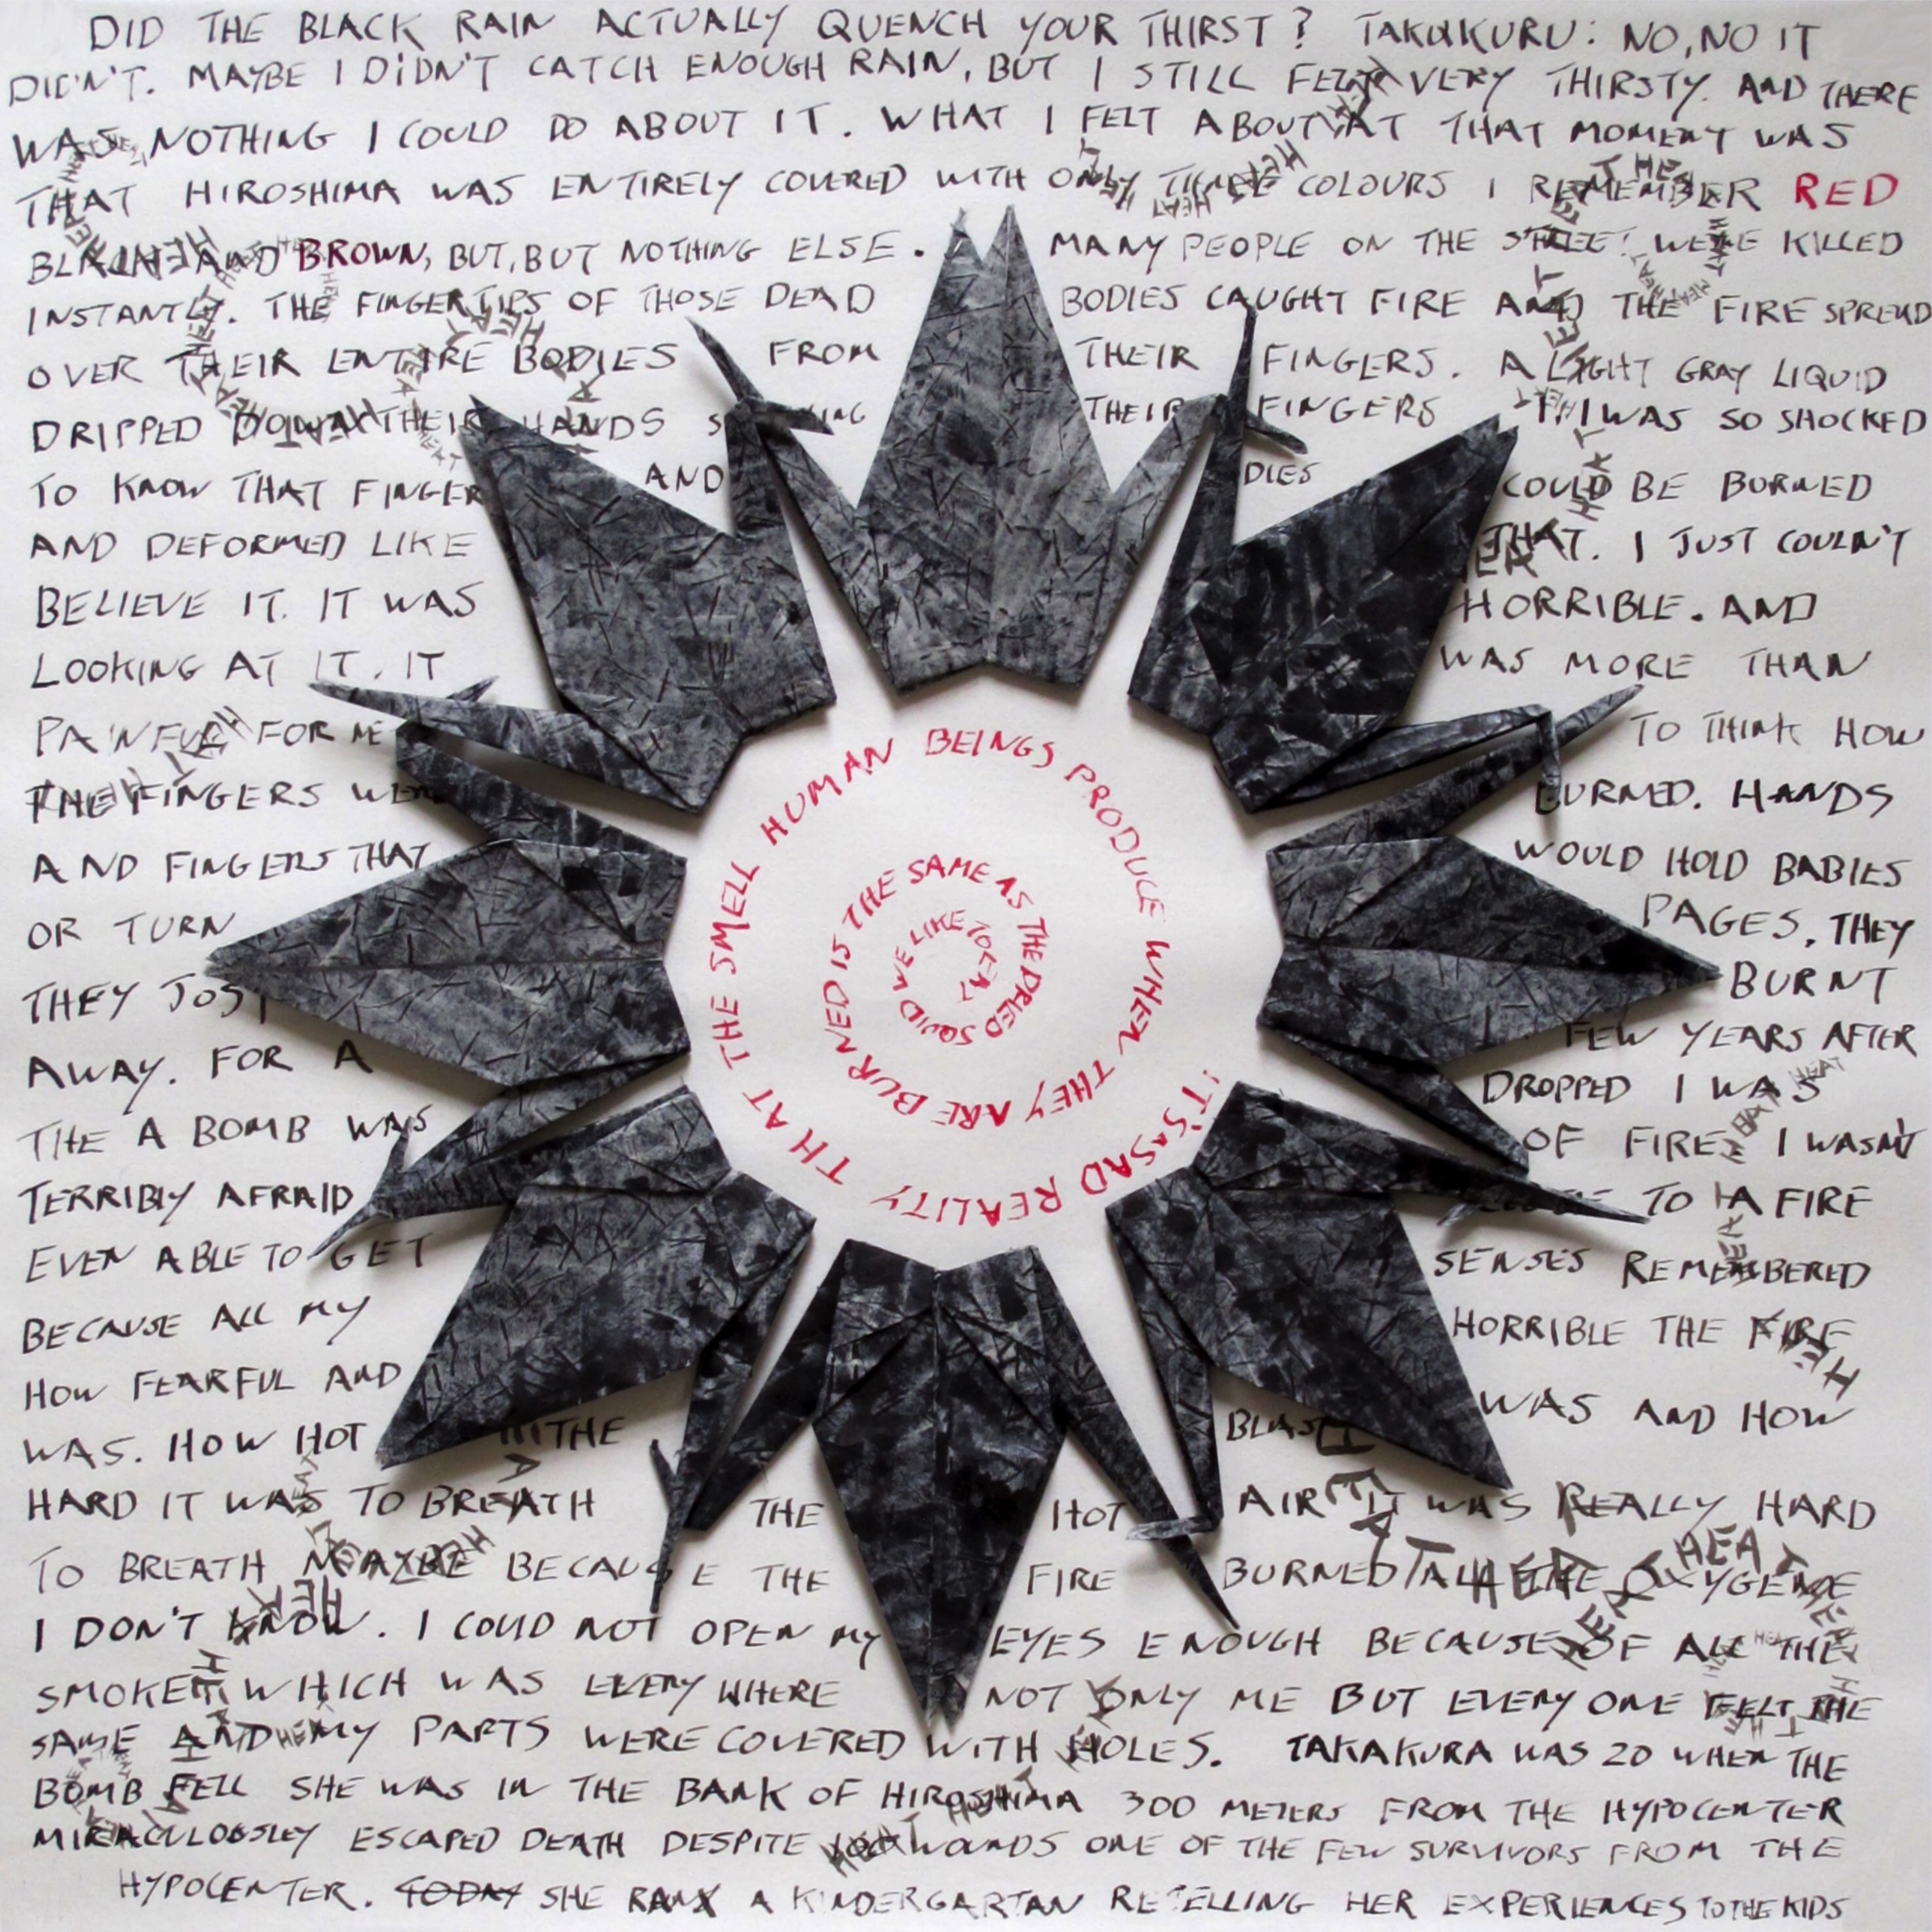 DID THE BLACK RAIN ACTUALLY QUENCH YOUR THIRST? TAKAKURU: NO, NO IT
DIDN'T. MAYBE I DIDN'T CATCH ENOUGH RAIN, BUT I STILL FELT VERY THIRSTY. AND THERE
WAS NOTHING I COULD DO ABOUT IT. WHAT I FELT ABOUT AT THAT MOMENT WAS
THAT HIROSHIMA WAS ENTIRELY COVERED WITH ONLY THREE COLOURS I REMEMBER RED
BLACK AND BROWN, BUT, BUT NOTHING ELSE. MANY PEOPLE ON THE STREET WERE KILLED
INSTANTLY. THE FINGERTIPS OF THOSE DEAD BODIES CAUGHT FIRE AND THE FIRE SPREAD
OVER THEIR ENTIRE BODIES FROM THEIR FINGERS. A LIGHT GRAY LIQUID
DRIPPED DOWN THEIR HANDS THEIR FINGERS I WAS SO SHOCKED
TO KNOW THAT FINGER AND DIES COULD BE BURNED
AND DEFORMED LIKE THAT. I JUST COULN'T
BELIEVE IT. IT WAS HORRIBLE. AND
LOOKING AT IT. IT WAS MORE THAN
PAINFUL FOR ME TO THINK HOW
THE FINGERS WERE BURNED. HANDS
AND FINGERS THAT WOULD HOLD BABIES
OR TURN PAGES, THEY
THEY JUST BURNT
AWAY. FOR A FEW YEARS AFTER
THE A BOMB WAS DROPPED I WAS
TERRIBLY AFRAID OF FIRE I WASN'T
EVEN ABLE TO GET TO A FIRE
BECAUSE ALL MY SENSES REMEMBERED
HOW FEARFUL AND HORRIBLE THE FIRE
WAS. HOW HOT THE BLAST WAS AND HOW
HARD IT WAS TO BREATH THE HOT AIR IT WAS REALLY HARD
TO BREATH MAYBE BECAUSE THE FIRE BURNED ALL THE OXYGENE
I DON'T KNOW. I COULD NOT OPEN MY EYES ENOUGH BECAUSE OF ALL THE
SMOKE WHICH WAS EVERY WHERE NOT ONLY ME BUT EVERY ONE FELT THE
SAME AND MY PARTS WERE COVERED WITH HOLES. TAKAKURA WAS 20 WHEN THE
BOMB FELL SHE WAS IN THE BANK OF HIROSHIMA 300 METERS FROM THE HYPOCENTER
MIRACULOUSLEY ESCAPED DEATH DESPITE 100 WOUNDS ONE OF THE FEW SURVIVORS FROM THE
HYPOCENTER. TODAY SHE RAN A KINDERGARTAN RETELLING HER EXPERIENCES TO THE KIDS
IT'S A SAD REALITY THAT THE SMELL HUMAN BEINGS PRODUCE WHEN THEY ARE BURNED IS THE SAME AS THE DRIED SQUID WE LIKE TO EAT
HEAT HEAT HEAT HEAT